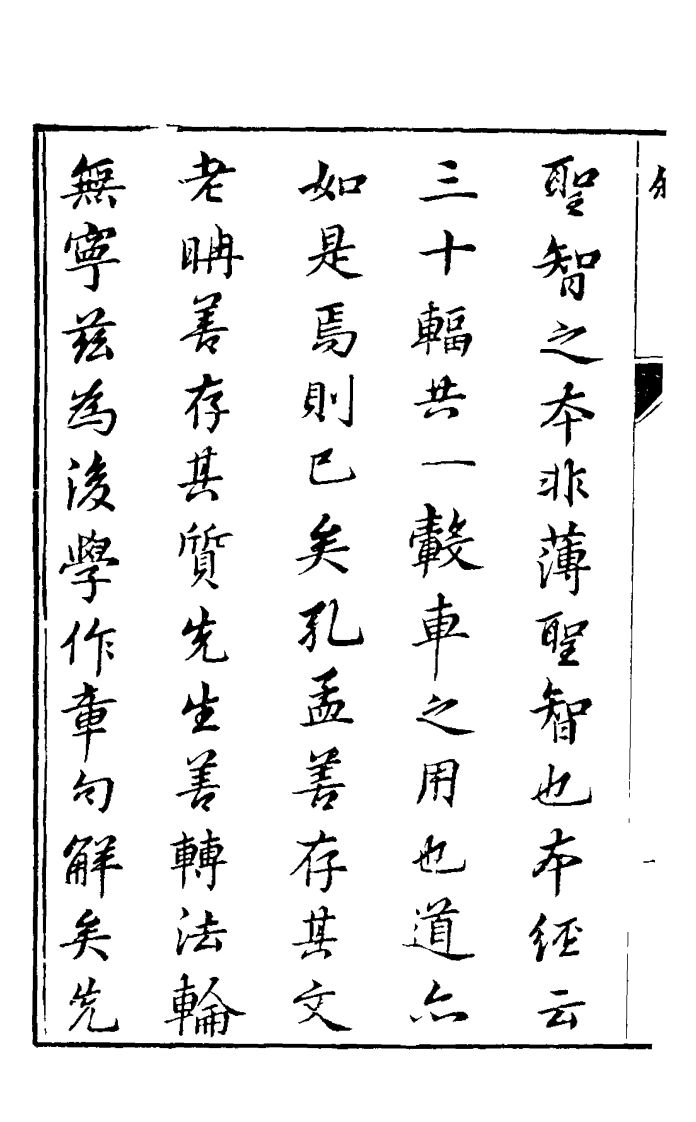 聖智之本非薄聖智也本經云
三十輻共一轂車之用也道亦
如是焉則已矣孔孟善存其文
老聃善存其質先生善轉法輪
無寧茲為後學作章句解矣先
一